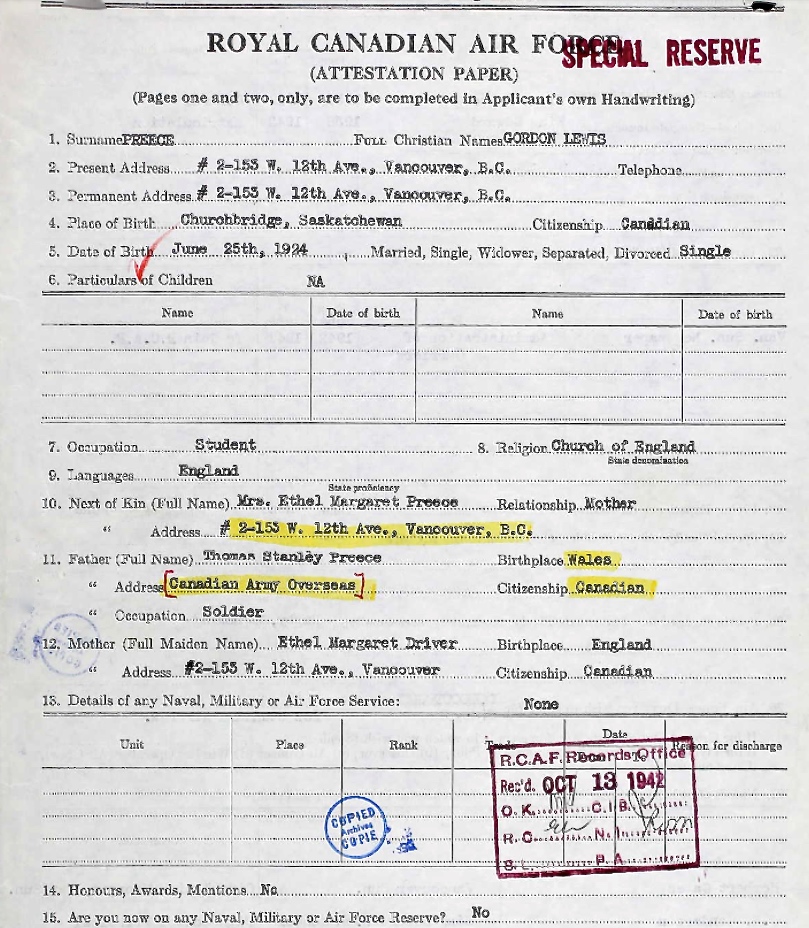 ROYAL CANADIAN AIR FORCE
SPECIAL RESERVE
(ATTESTATION PAPER)
(Pages one and two, only, are to be completed in Applicant's own Handwriting)
1. Surname PREECE Full Christian Names GORDON LEWIS
2. Present Address # 2-153 W. 12th Ave., Vancouver, B.C. Telephone
3. Permanent Address # 2-153 W. 12th Ave., Vancouver, B.C.
4. Place of Birth Churchbridge, Saskatchewan Citizenship Canadian
5. Date of Birth June 25th, 1924 Married, Single, Widower, Separated, Divorced Single
6. Particulars of Children NA
Name Date of birth Name Date of birth
7. Occupation Student 8. Religion Church of England
State denomination
9. Languages England
State proficiency
10. Next of Kin (Full Name) Mrs. Ethel Margaret Preece Relationship Mother
" Address # 2-153 W. 12th Ave., Vancouver, B.C.
11. Father (Full Name) Thomas Stanley Preece Birthplace Wales
" Address Canadian Army Overseas Citizenship Canadian
" Occupation Soldier
12. Mother (Full Maiden Name) Ethel Margaret Driver Birthplace England
" Address #2-153 W. 12th Ave., Vancouver Citizenship Canadian
13. Details of any Naval, Military or Air Force Service: None
Unit Place Rank Trade Date Reason for discharge
R.C.A.F. Records Office
Rec'd. OCT 13 1942
O.K. C.I.B.
R.C. N.I.
S.L. P.A.
COPIED
Archives
COPIE
14. Honours, Awards, Mentions No
15. Are you now on any Naval, Military or Air Force Reserve? No